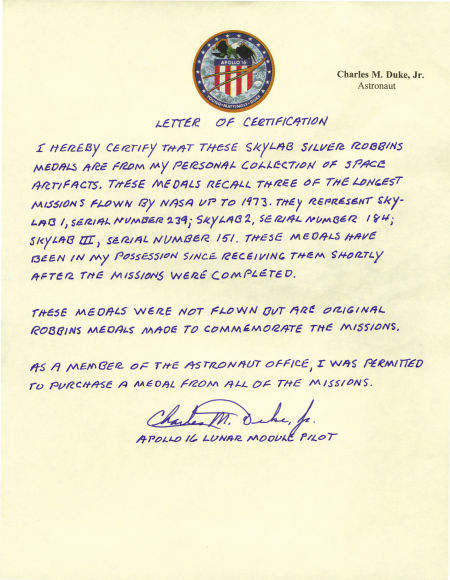 APOLLO 16
YOUNG • MATTINGLY • DUKE
Charles M. Duke, Jr.
Astronaut
LETTER OF CERTIFICATION
I HEREBY CERTIFY THAT THESE SKYLAB SILVER ROBBINS
MEDALS ARE FROM MY PERSONAL COLLECTION OF SPACE
ARTIFACTS. THESE MEDALS RECALL THREE OF THE LONGEST
MISSIONS FLOWN BY NASA UP TO 1973. THEY REPRESENT SKY-
LAB 1, SERIAL NUMBER 239; SKYLAB 2, SERIAL NUMBER 184;
SKYLAB III, SERIAL NUMBER 151. THESE MEDALS HAVE
BEEN IN MY POSSESSION SINCE RECEIVING THEM SHORTLY
AFTER THE MISSIONS WERE COMPLETED.
THESE MEDALS WERE NOT FLOWN BUT ARE ORIGINAL
ROBBINS MEDALS MADE TO COMMEMORATE THE MISSIONS.
AS A MEMBER OF THE ASTRONAUT OFFICE, I WAS PERMITTED
TO PURCHASE A MEDAL FROM ALL OF THE MISSIONS.
Charles M. Duke, Jr.
APOLLO 16 LUNAR MODULE PILOT